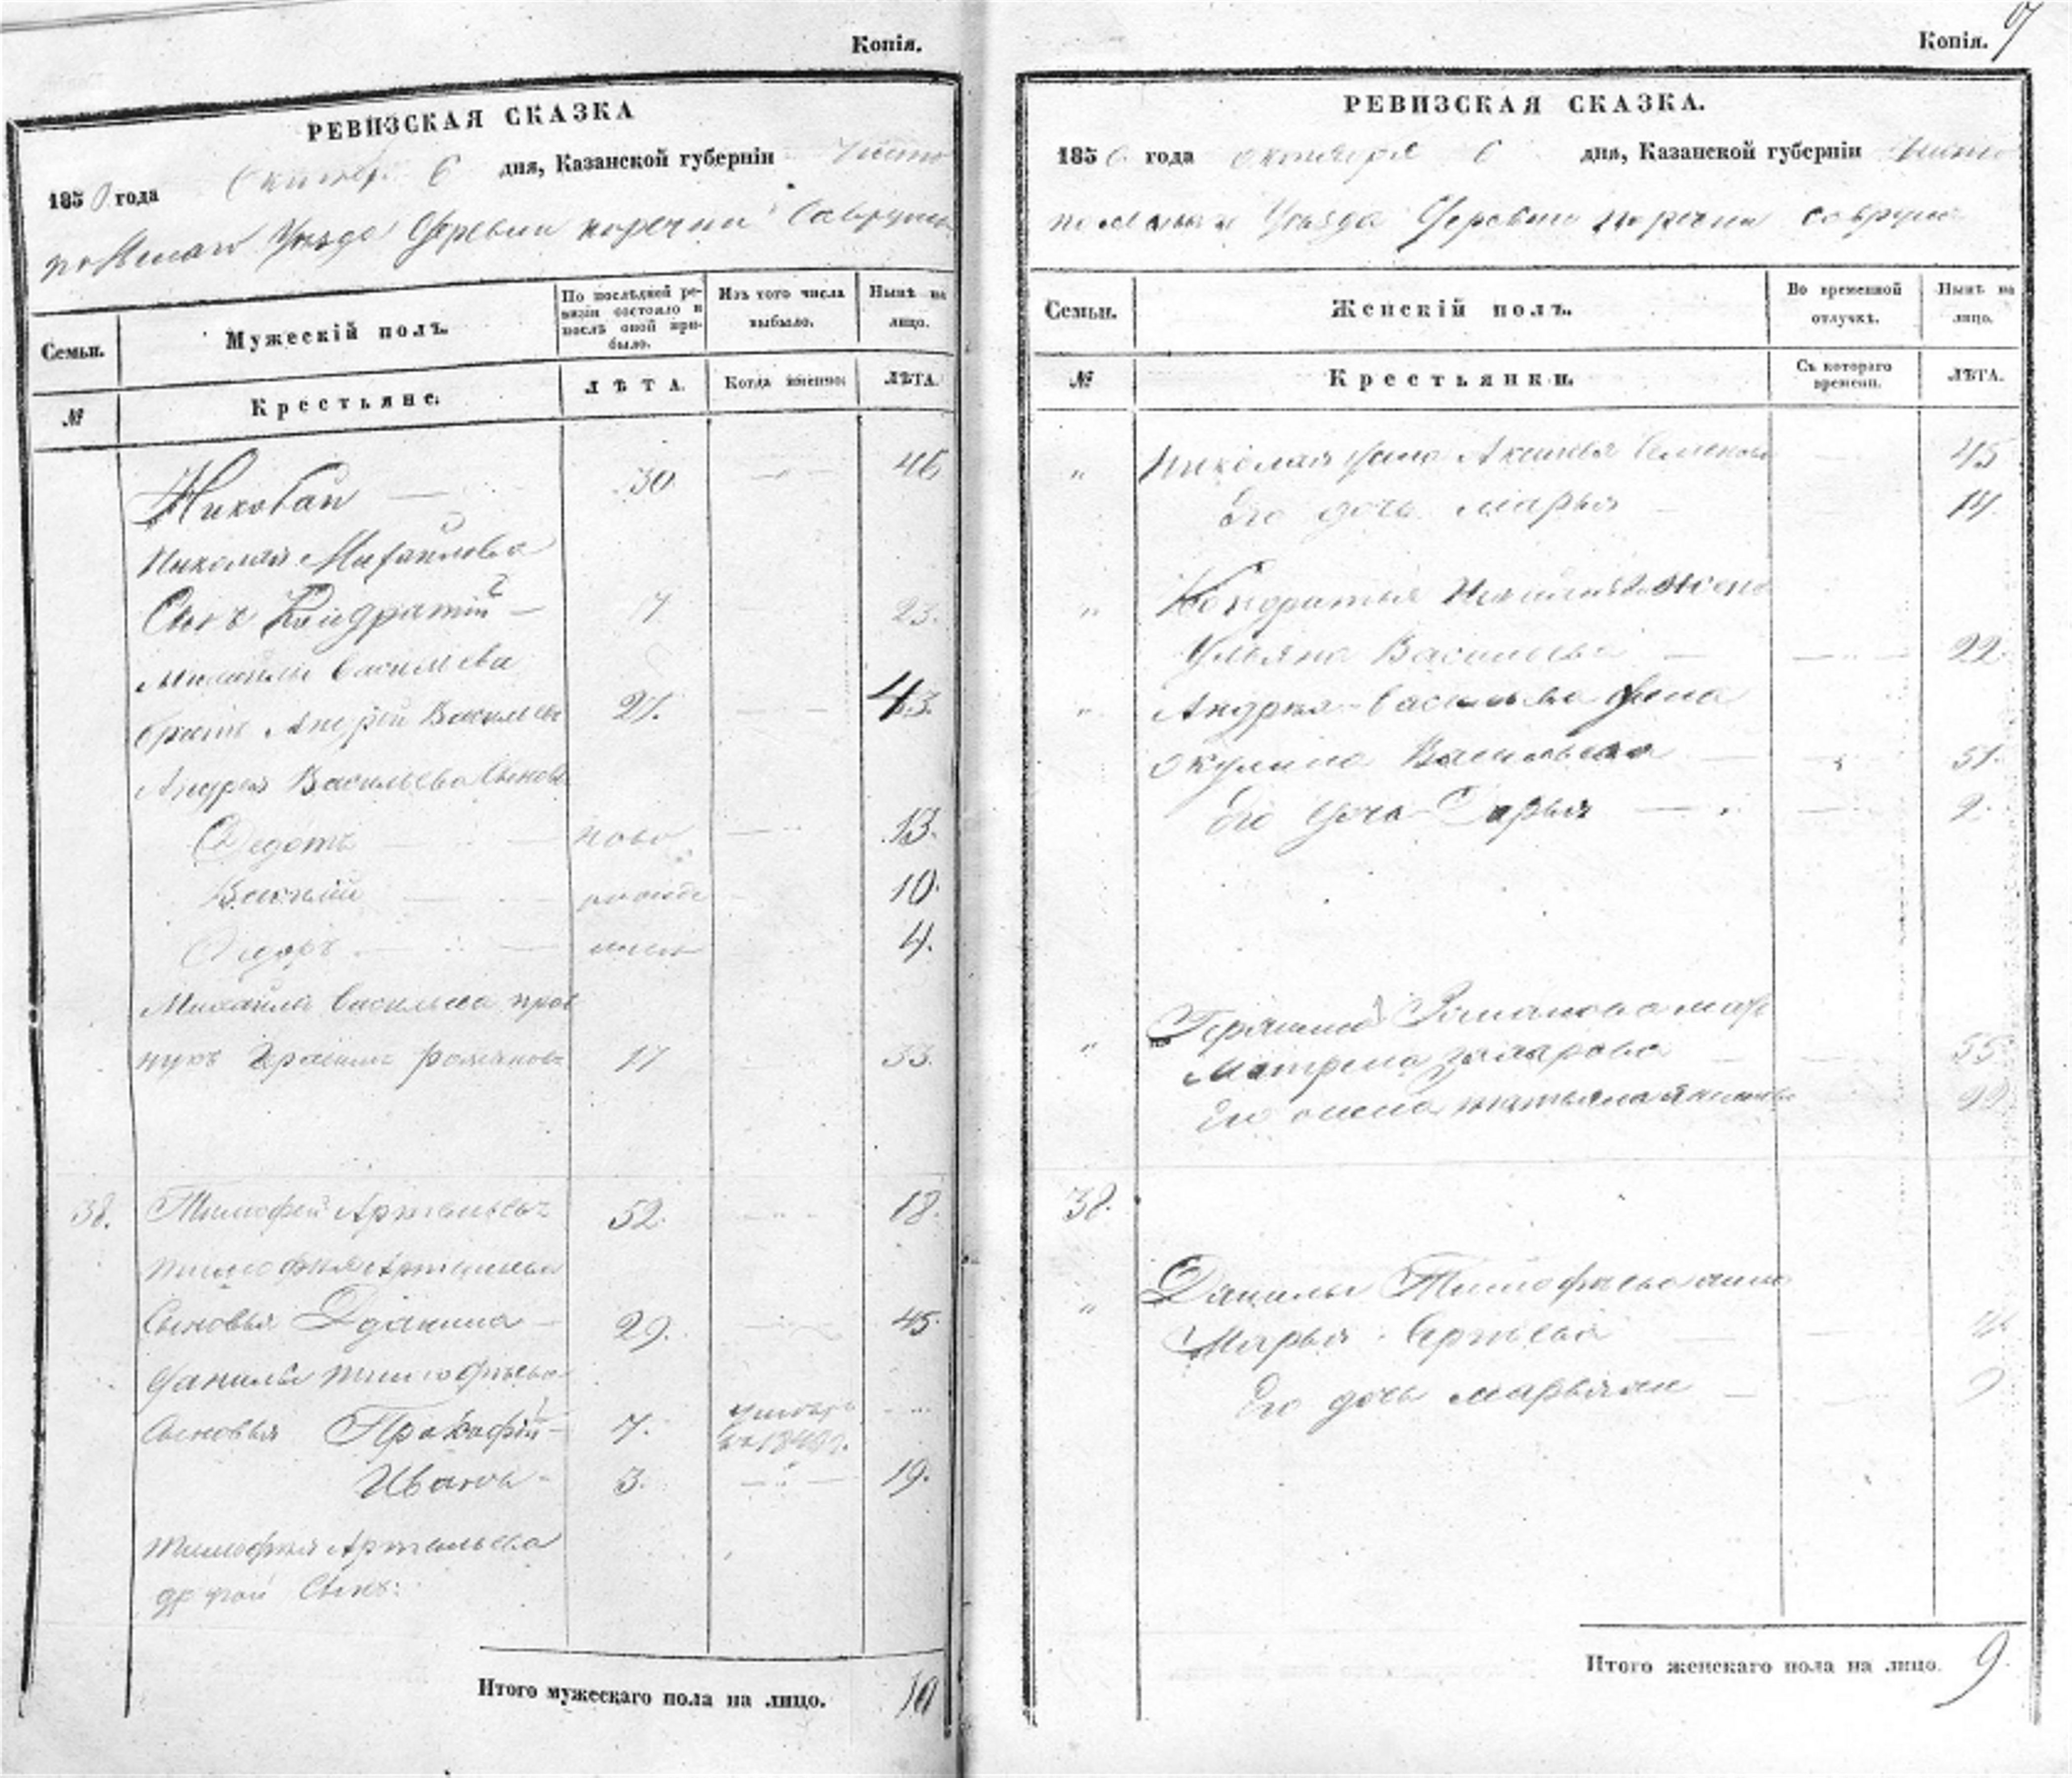 Копія.
РЕВИЗСКАЯ СКАЗКА
1850 года Октября 6 дня, Казанской губерніи Чисто
польскаго Уезда Деревни поречни
Семьи.
Мужескій полъ.
По послѣдней ре-
визіи состояло и
послѣ оной при-
было.
Изъ того числа
выбыло.
Нынѣ на
лицо.
№
Крестьяне.
ЛѢТА.
Когда именно:
ЛѢТА.
Николай 30. 46
Николая Михайлова
Сынъ Кондратій 7 23.
Михайлы Васильева
братъ Андрей Васильевъ 27. 43.
Андрея Васильева Сыновья
Федотъ ново 13.
Василій рожде 10.
4.
Михайлы Васильева
нукъ романовъ 17 33.
38. Тимофей Артемьевъ 52. 18.
Тимофея Артемьева
Сыновья Данила 29. 45.
Данилы Тимофеева
Сыновья Прокофій 7.
Иванъ 3. 19.
Тимофея Артемьева
другой Сынъ:
Итого мужескаго пола на лицо. 10
Копія.
РЕВИЗСКАЯ СКАЗКА.
1850 года октября 6 дня, Казанской губерніи Чисто
польскаго Уезда Деревни поречни
Семьи.
Женскій полъ.
Во временной
отлучкѣ.
Нынѣ на
лицо.
№
Крестьянки.
Съ котораго
времени.
ЛѢТА.
" Николая жена Аксинья Семенова 45
Его дочь Марья 14.
" Кондратья Николаева жена
Ульяна Васильева 22.
" Андрея Васильева жена
Окулина Васильева 51.
Его дочь Дарья 2.
" Романова мать
Матрена 55.
Его жена татьяна
38.
" Данилы Тимофеева жена
Марья Сергеева
Его дочь
Итого женскаго пола на лицо. 9.